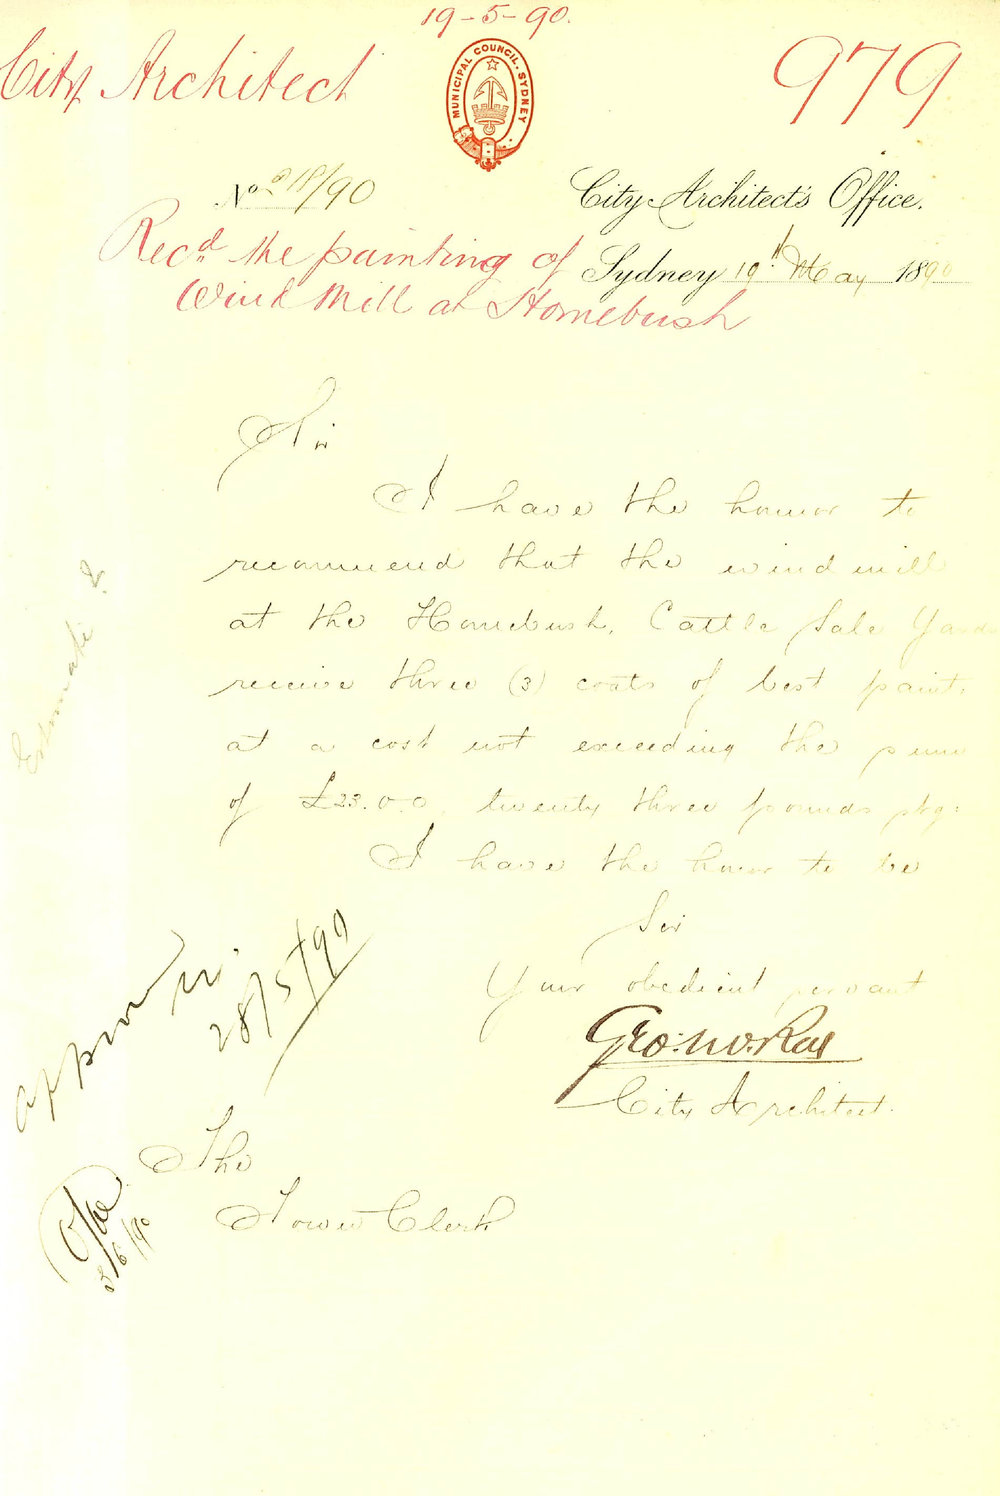 19-5-90.
City Architect
979
MUNICIPAL COUNCIL. SYDNEY
No 218/90
City Architect's Office.
Recd the painting of
Wind Mill at Homebush
Sydney 19th May 1890
Sir
I have the honor to
recommend that the wind mill
at the Homebush, Cattle Sale Yards
receive three (3) coats of best paint.
at a cost not exceeding the sum
of £23.0.0, twenty three pounds stg.
I have the honor to be
Sir
Your obedient servant
Geo:
City Architect.
Estimate &
28/5/90
3/6/90
The
Town Clerk